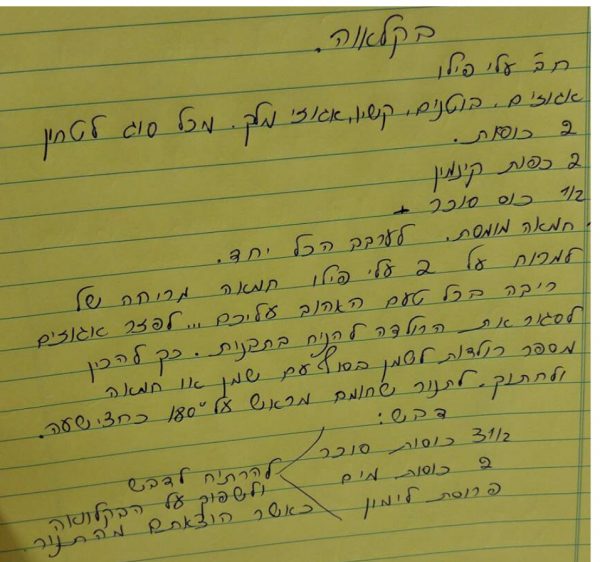 בקלאווה.
חב' עלי פילו
אגוזים, בוטנים, קשיו, אגוזי מלך. מכל סוג לטחין
2 כוסות.
2 כפות קינמין
1/2 כוס סוכר +
חמאה מומסת. לערבב הכל יחד.
למרוח על 2 עלי פילו חמאה מריחה של
ריבה בכל טעם האהוב עליכם... לפזר אגוזים
לסגור את הרולדה להניח בתבנית. כך להכין
מספר רולדות לשמן בסוף עם שמן או חמאה
ולחתוך. לתנור שחומם מראש על 180° כחצי שעה.
דבש:
3 1/2 כוסות סוכר
2 כוסות מים
פרוסת לימון
להרתיח לדבש
ולשפוך על הבקלוואה
כאשר הוצאתם מהתנור.